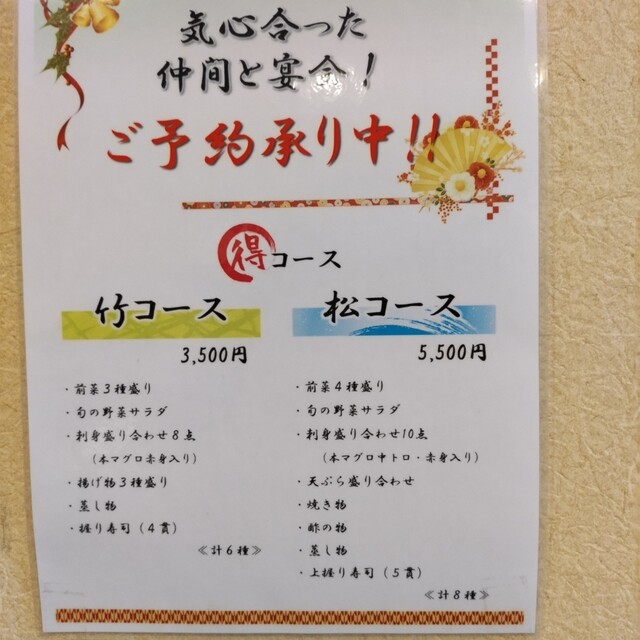 気心合った
仲間と宴会！
ご予約承り中！！
得コース
竹コース
3,500円
・前菜3種盛り
・旬の野菜サラダ
・刺身盛り合わせ8点
（本マグロ赤身入り）
・揚げ物3種盛り
・蒸し物
・握り寿司（4貫）
≪計6種≫
松コース
5,500円
・前菜4種盛り
・旬の野菜サラダ
・刺身盛り合わせ10点
（本マグロ中トロ・赤身入り）
・天ぷら盛り合わせ
・焼き物
・酢の物
・蒸し物
・上握り寿司（5貫）
≪計8種≫